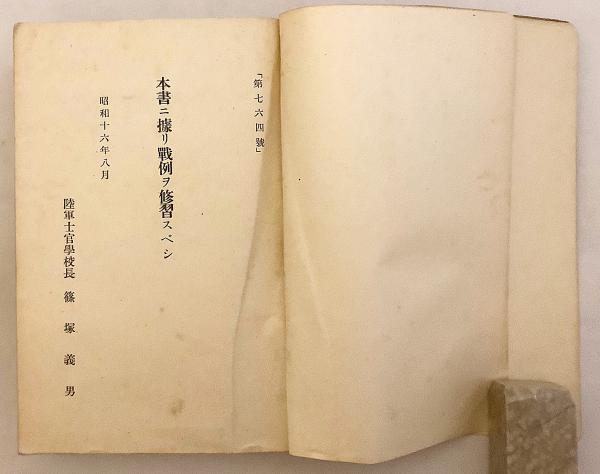 「第七六四號」
本書ニ據リ戰例ヲ修習スベシ
昭和十六年八月
陸軍士官學校長 篠塚義男